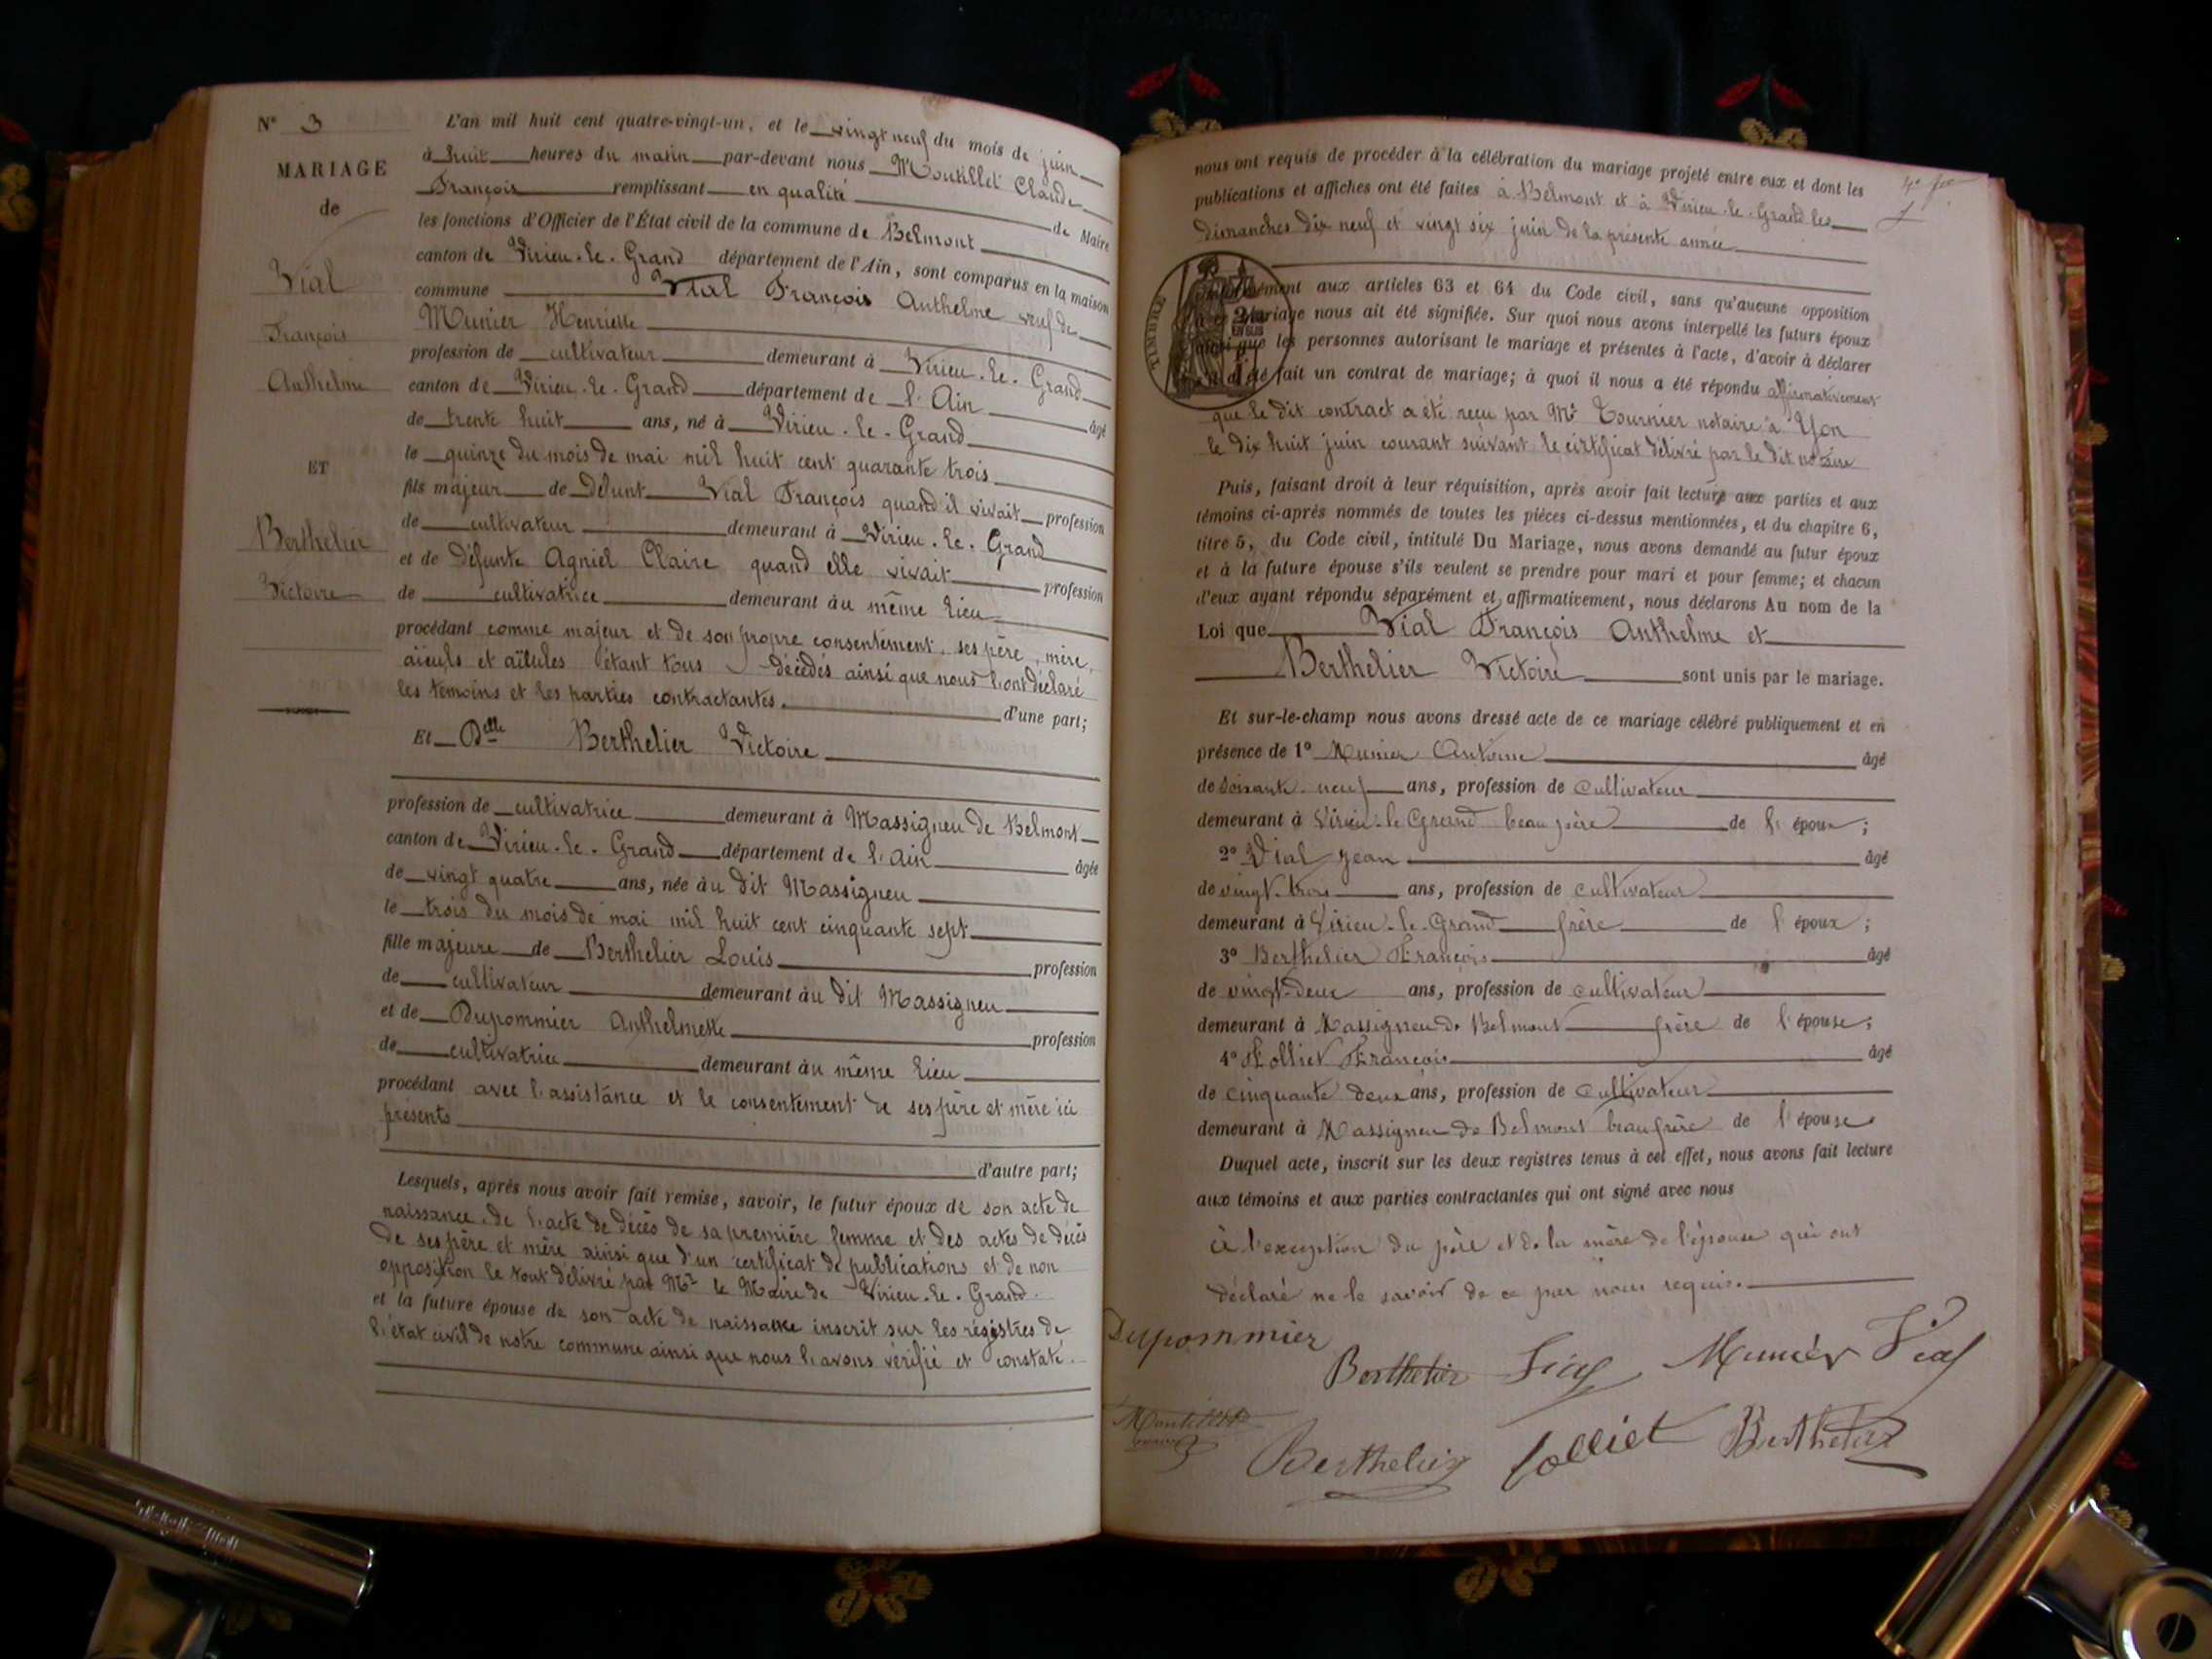 N° 3
MARIAGE
de
Vial
François
Anthelme
ET
Berthelier
Victoire
L'an mil huit cent quatre-vingt-un, et le vingt neuf du mois de juin
à huit heures du matin par-devant nous Moutillet Claude
François remplissant en qualité de Maire
les fonctions d'Officier de l'État civil de la commune de Belmont
canton de Virieu-le-Grand département de l'Ain, sont comparus en la maison
commune Vial François Anthelme veuf de
Munier Henriette
profession de cultivateur demeurant à Virieu-le-Grand
canton de Virieu-le-Grand département de l'Ain âgé
de trente huit ans, né à Virieu-le-Grand
le quinze du mois de mai mil huit cent quarante trois
fils majeur de défunt Vial François quand il vivait profession
de cultivateur demeurant à Virieu-le-Grand
et de défunte Agniel Claire quand elle vivait profession
de cultivatrice demeurant au même lieu
procédant comme majeur et de son propre consentement, ses père, mère,
aïeuls et aïeules étant tous décédés ainsi que nous l'ont déclaré
les témoins et les parties contractantes. d'une part;
Et Delle Berthelier Victoire
profession de cultivatrice demeurant à Massigneu de Belmont
canton de Virieu-le-Grand département de l'Ain âgée
de vingt quatre ans, née au dit Massigneu
le trois du mois de mai mil huit cent cinquante sept
fille majeure de Berthelier Louis profession
de cultivateur demeurant au dit Massigneu
et de Dupommier Anthelmette profession
de cultivatrice demeurant au même lieu
procédant avec l'assistance et le consentement de ses père et mère ici
présents
d'autre part;
Lesquels, après nous avoir fait remise, savoir, le futur époux de son acte de
naissance, de l'acte de décès de sa première femme et des actes de décès
de ses père et mère ainsi que d'un certificat de publications et de non
opposition le tout délivré par Mr le Maire de Virieu-le-Grand.
et la future épouse de son acte de naissance inscrit sur les registres de
l'état civil de notre commune ainsi que nous l'avons vérifié et constaté.
nous ont requis de procéder à la célébration du mariage projeté entre eux et dont les
publications et affiches ont été faites à Belmont et à Virieu-le-Grand les
dimanches dix neuf et vingt six juin de la présente année
TIMBRE
aux articles 63 et 64 du Code civil, sans qu'aucune opposition
mariage nous ait été signifiée. Sur quoi nous avons interpellé les futurs époux
ainsi que les personnes autorisant le mariage et présentes à l'acte, d'avoir à déclarer
s'il a été fait un contrat de mariage; à quoi il nous a été répondu affirmativement
que le dit contract a été reçu par Me Tournier notaire à Yon
le dix huit juin courant suivant le certificat délivré par le dit notaire
Puis, faisant droit à leur réquisition, après avoir fait lecture aux parties et aux
témoins ci-après nommés de toutes les pièces ci-dessus mentionnées, et du chapitre 6,
titre 5, du Code civil, intitulé Du Mariage, nous avons demandé au futur époux
et à la future épouse s'ils veulent se prendre pour mari et pour femme; et chacun
d'eux ayant répondu séparément et affirmativement, nous déclarons Au nom de la
Loi que Vial François Anthelme et
Berthelier Victoire sont unis par le mariage.
Et sur-le-champ nous avons dressé acte de ce mariage célébré publiquement et en
présence de 1° Munier Antoine âgé
de soixante-neuf ans, profession de cultivateur
demeurant à Virieu-le-Grand beau père de l'époux;
2° Vial Jean âgé
de vingt-trois ans, profession de cultivateur
demeurant à Virieu-le-Grand frère de l'époux;
3° Berthelier François âgé
de vingt-deux ans, profession de cultivateur
demeurant à Massigneu de Belmont frère de l'épouse;
4° Folliet François âgé
de cinquante deux ans, profession de cultivateur
demeurant à Massigneu de Belmont beau frère de l'épouse
Duquel acte, inscrit sur les deux registres tenus à cet effet, nous avons fait lecture
aux témoins et aux parties contractantes qui ont signé avec nous
à l'exception du père et de la mère de l'épouse qui ont
déclaré ne le savoir de ce par nous requis.
Dupommier
Berthelier Vial Munier Vial
Berthelier folliet Berthelier